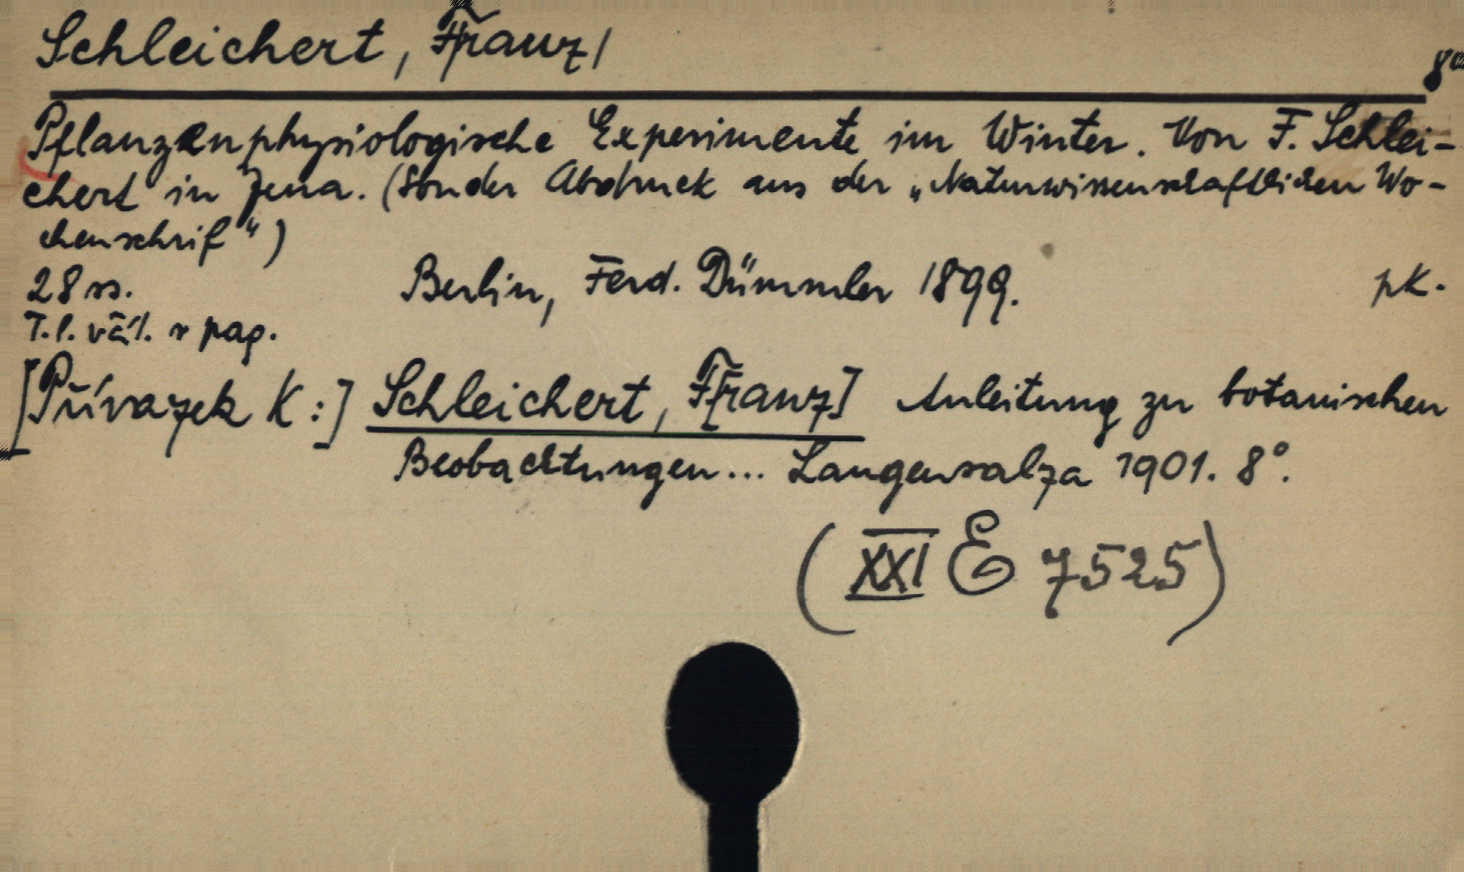 Schleichert, Franz
8°
Pflanzenphysiologische Experimente im Winter. Von F. Schlei-
chert in Jena. (Sonder Abdruck aus der „Naturwissenschaftlichen Wo-
chenschrif“)
28 ss. Berlin, Ferd. Dümmler 1899. pk.
T. l. váz. v pag.
[Přívazek K:] Schleichert, F[ranz] Anleitung zu botanischen
Beobachtungen... Langensalza 1901. 8°.
(XXI E 7525)